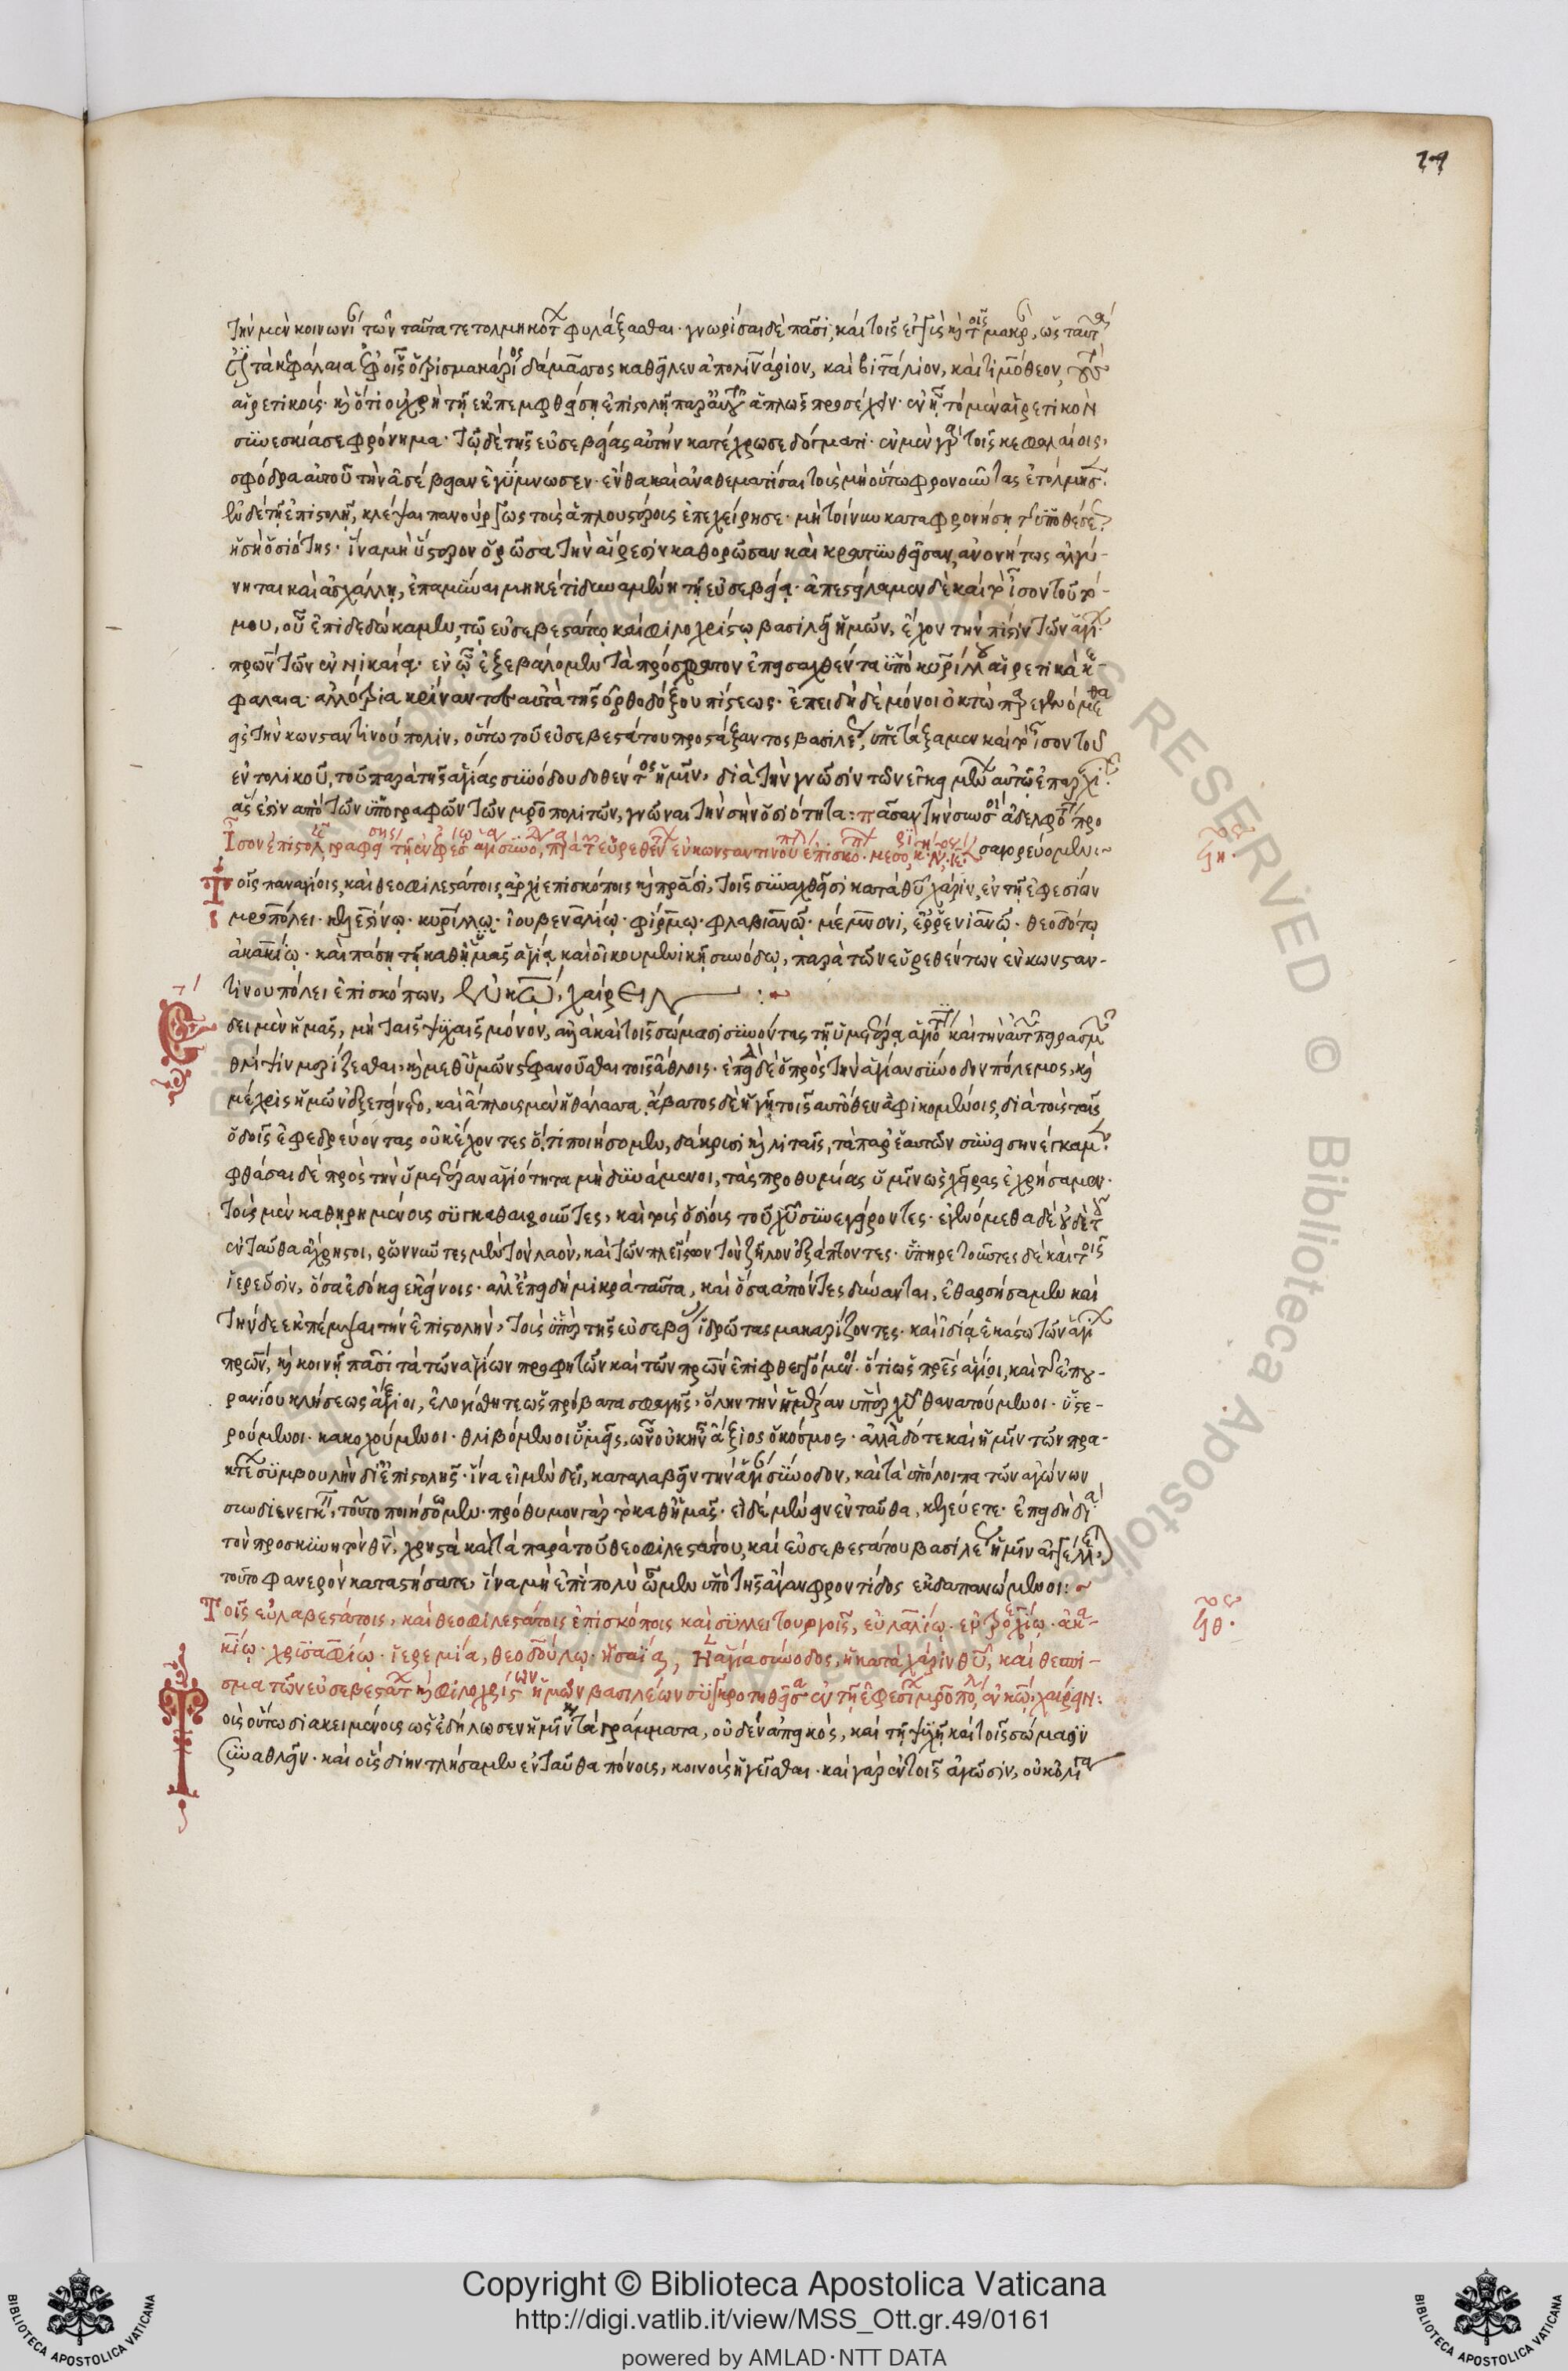 79
τὴν μὲν κοινωνί τῶν ταῦτα τετολμηκότ φυλάξασθαι· γνωρίσαι δὲ πᾶσι, καὶ τοῖς ἐγγὺς κ τοῖς μακρ, ὡς ταῦτ
τὰ κεφάλαια ἐφ οἷς ὁ τρισμακάριος δάμασος καθεῖλεν ἀπολινάριον, καὶ βιτάλιον, καὶ τιμόθεον,
αἱρετικούς· κ ὅτι οὐ χρὴ τῇ ἐκπεμφθείσῃ ἐπιστολῇ παρ αὐτοῦ ἁπλῶς προσέχειν· ἐν ᾗ τὸ μὲν αἱρετικὸν
συνεσκίασε φρόνημα· τῷ δὲ τῆς εὐσεβείας αὐτὴν κατέχρωσε δόγματι· ἐν μὲν γὰρ τοῖς κεφαλαίοις,
σφόδρα αὐτοῦ τὴν ἀσέβειαν ἐγύμνωσεν· ἔνθα καὶ ἀναθεματίσαι τοὺς μὴ οὕτω φρονοῦντας ἐτόλμησ
ἐν δὲ τῇ ἐπιστολῇ, κλέψαι πανούργως τοὺς ἁπλουστέροις ἐπεχείρησε· μὴ τοίνυν καταφρονήσῃ τ ὑποθέσε
ἡ σὴ ὁσιότης· ἵνα μὴ ὕστερον ὁρῶσα τὴν αἵρεσιν καθορῶσαν καὶ κρατυνθεῖσαν, ἀνονήτως ἀλγύ-
νηται καὶ ἀσχάλλῃ, ἐπαμῦναι μηκέτι δυναμένη τῇ εὐσεβείᾳ· ἀπεστείλαμεν δὲ καὶ τὸ ἴσον τοῦ τό-
μου, οὗ ἐπιδεδώκαμεν τῷ εὐσεβεστάτῳ καὶ φιλοχρίστῳ βασιλεῖ ἡμῶν, ἔχον τὴν πίστιν τῶν ἁγί
πρων τῶν ἐν νικαίᾳ· ἐν ᾧ ἐξεβάλομεν τὰ πρόσφατον ἐπεισαχθέντα ὑπὸ κυρίλλου αἱρετικὰ κε-
φάλαια· ἀλλότρια κρίναντες αὐτὰ τῆς ὀρθοδόξου πίστεως· ἐπειδὴ δὲ μόνοι ὀκτὼ παρεγενόμεθα
εἰς τὴν κωνσταντινούπολιν, οὕτω τοῦ εὐσεβεστάτου προστάξαντος βασιλέ, ὑπετάξαμεν καὶ τὸ ἴσον τοῦ
ἐντολικοῦ, τοῦ παρὰ τῆς ἁγίας συνόδου δοθέντος ἡμῖν, διὰ τὴν γνῶσιν τῶν ἐγκειμένων αὐτῷ ἐπαρχι
ἅς ἐστιν ἀπὸ τῶν ὑπογραφῶν τῶν μροπολιτῶν, γνῶναι τὴν σὴν ὁσιότητα: πᾶσαν τὴν σὺν σοὶ ἀδελφότ προ
Ἴσον ἐπιστολ γραφείσης τῇ ἐν ἐφέσ ἁγί συνόδ, παρὰ τ εὑρεθέντ ἐν κωνσταντινουπόλ ἐπισκόπ· σαγορεύομεν:~
Τοῖς παναγίοις, καὶ θεοφιλεστάτοις ἀρχιεπισκόποις κ πράσι, τοῖς συναχθεῖσι κατὰ θῦ χάριν, ἐν τῇ ἐφεσίων
μροπόλει· κελεστίνῳ· κυρίλλῳ· ἰουβεναλίῳ· φίρμῳ· φλαβιανῷ· μέμνονι, ἐρρενιανῷ· θεοδότῳ
ἀκακίῳ· καὶ πάσῃ τῇ καθ ἡμᾶς ἁγίᾳ, καὶ οἰκουμενικῇ συνόδῳ, παρὰ τῶν εὑρεθέντων ἐν κωνσταν-
τινουπόλει ἐπισκόπων, ἐν κῷ, χαίρειν :
Ἔδει μὲν ἡμᾶς, μὴ ταῖς ψυχαῖς μόνον, ἀλλὰ καὶ τοῖς σώμασι συνόντας τῇ ὑμετέρᾳ ἁγιότ καὶ τὴν αὐτ πειρασμ
θλίψιν μερίζεσθαι, κ μεθ ὑμῶν στεφανοῦσθαι τοῖς ἄθλοις· ἐπεὶ δὲ ὁ πρὸς τὴν ἁγίαν σύνοδον πόλεμος, κ
μέχρις ἡμῶν ἐξετείνετο, καὶ ἄπλους μὲν ἡ θάλασσα, ἄβατος δὲ ἡ γῆ τοῖς αὐτόθεν ἀφικομένοις, διὰ τοὺς ταῖς
ὁδοῖς ἐφεδρεύοντας οὐκ ἔχοντες ὅ,τι ποιήσομεν, δάκρυσι κ λιταῖς, τὰ παρ ἑαυτῶν συνεισηνέγκαμ
φθάσαι δὲ πρὸς τὴν ὑμετέραν ἁγιότητα μὴ δυνάμενοι, τὰς προθυμίας ὑμῖν ὡς χεῖρας ἐχρήσαμεν·
τοῖς μὲν καθῃρημένοις συγκαθαιροῦντες, καὶ τοῖς ὁσίοις τοῦ χῦ συνεγείροντες· ἐγενόμεθα δὲ οὐδὲ τ
ἐνταῦθα ἄχρηστοι, ῥωννύντες μὲν τὸν λαὸν, καὶ τῶν πλείστων τὸν ζῆλον ἐξάπτοντες· ὑπηρετοῦντες δὲ καὶ τοῖς
ἱερεῦσιν, ὅσα ἐδόκει ἐκείνοις· ἀλλ ἐπειδὴ μικρὰ ταῦτα, καὶ ὅσα ἀπόντες δύνανται, ἐθαρσήσαμεν καὶ
τήνδε ἐκπέμψαι τὴν ἐπιστολὴν, τοὺς ὑπὲρ τῆς εὐσεβεί ἱδρῶτας μακαρίζοντες· καὶ ἰδίᾳ ἑκάστῳ τῶν ἁγί
πρων, κ κοινῇ πᾶσι τὰ τῶν ἁγίων προφητῶν καὶ τῶν πρων ἐπιφθεγγόμενοι· ὅτι ὡς πρες ἅγιοι, καὶ τ ἐπου-
ρανίου κλήσεως ἄξιοι, ἐλογίσθητε ὡς πρόβατα σφαγῆς, ὅλην τὴν ἡμέραν ὑπὲρ χῦ θανατούμενοι· ὑστε-
ρούμενοι· κακοχούμενοι· θλιβόμενοι ὑμεῖς, ὧν οὐκ ἦν ἄξιος ὁ κόσμος· ἀλλὰ δότε καὶ ἡμῖν τῶν πρα-
κτέ συμβουλὴν δι ἐπιστολῆς· ἵνα εἰ μὲν δεῖ, καταλαβεῖν τὴν ἁγί σύνοδον, καὶ τὰ ὑπόλοιπα τῶν ἀγώνων
συνδιενεγκ, τοῦτο ποιήσομεν· πρόθυμον γὰρ τὸ καθ ἡμᾶς· εἰ δὲ μένειν ἐνταῦθα, κελεύετε· ἐπειδὴ διὰ
τὸν προσκυνητὸν θν, χρηστὰ κατὰ παρὰ τοῦ θεοφιλεστάτου, καὶ εὐσεβεστάτου βασιλέ ἡμῖν ἀγγέλλ,
τοῦτο φανερὸν καταστήσατε, ἵνα μὴ ἐπιπολὺ ὦμεν ὑπὸ τῆς ἄγαν φροντίδος ἐκδαπανώμενοι:~
Τοῖς εὐλαβεστάτοις, καὶ θεοφιλεστάτοις ἐπισκόποις καὶ συλλειτουργοῖς, εὐλαλίῳ· ἐντρεχίῳ· ἀκα-
κίῳ· χρισαφίῳ· ἱερεμίᾳ, θεοδούλῳ· ἡσαΐᾳ, Ἡ ἁγία σύνοδος, ἡ κατὰ χάριν θῦ, καὶ θεσπί-
σμα τῶν εὐσεβεστάτ κ φιλοχρίστων ἡμῶν βασιλέων συγκροτηθεῖσα ἐν τῇ ἐφεσί μροπόλ, ἐν κῷ, χαίρειν:
Τοῖς οὕτω διακειμένοις ὡς ἐδήλωσεν ἡμῖν τὰ γράμματα, οὐδὲν ἀπεικὸς, καὶ τῇ ψυχῇ καὶ τοῖς σώμασιν
συναθλεῖν· καὶ οἷς διηντλήσαμεν ἐνταῦθα πόνοις, κοινοὺς ἡγεῖσθαι· καὶ γὰρ ἐν τοῖς ἀγῶσιν, οὐκ ὀλίγα
ϟη·
ϟθ·
Copyright © Biblioteca Apostolica Vaticana
http://digi.vatlib.it/view/MSS_Ott.gr.49/0161
powered by AMLAD·NTT DATA
BIBLIOTECA APOSTOLICA VATICANA
BIBLIOTECA APOSTOLICA VATICANA